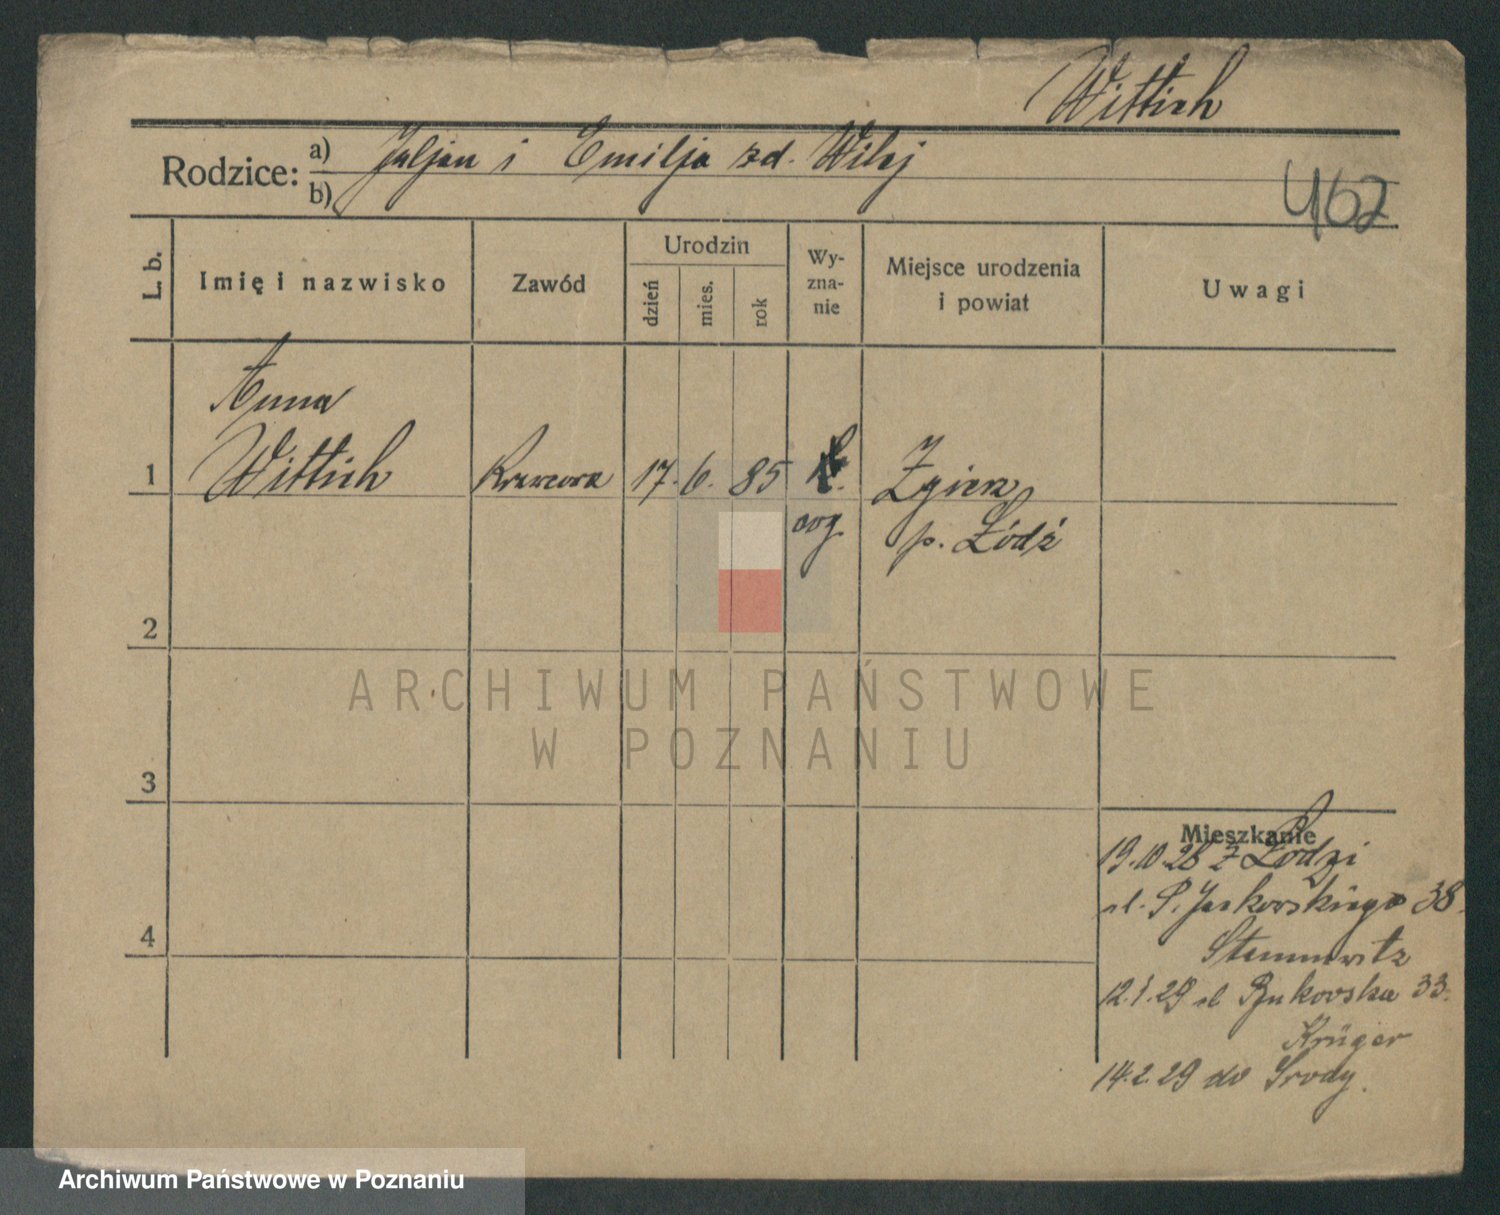 Wittich
Rodzice: a) Juljan i Emilja zd. Wilej
b)
462
L. b.
Imię i nazwisko
Zawód
Urodzin
dzień
mies.
rok
Wy-
zna-
nie
Miejsce urodzenia
i powiat
Uwagi
Anna
1 Wittich Krawcowa 17. 6. 85 Zgierz
p. Łódź
2
3
4
Mieszkanie
19.10.28 z Łodzi
ul. P. Jackowskiego 38.
12.1.29 ul Bukowska 33.
Krüger
14.2.29 do Środy.
ARCHIWUM PAŃSTWOWE
W POZNANIU
Archiwum Państwowe w Poznaniu